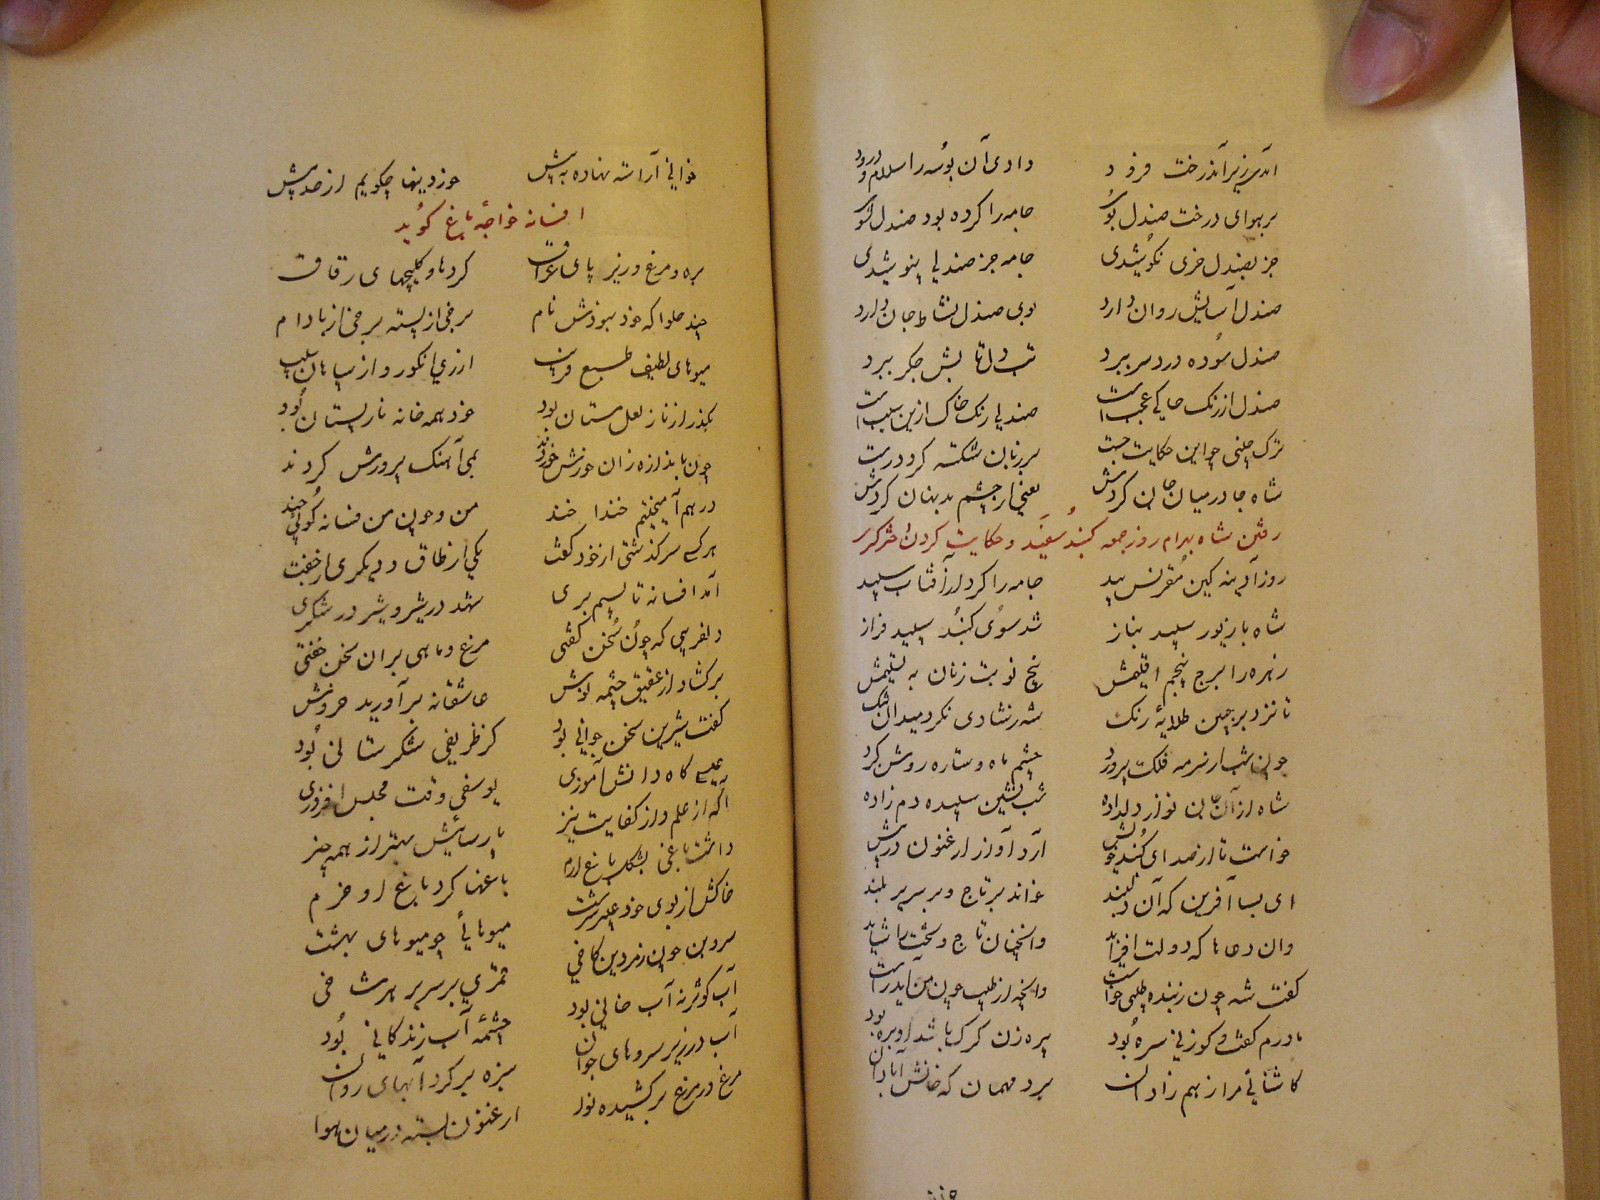 آمدی زیر آن درخت فرود دادی آن بوسه را سلام و درود
بر هوای درخت صندل بوی جامه را کرده بود صندل شوی
جز بصندل خری نکوشیدی جامه جز صندلی نپوشیدی
صندل آسایش روان دارد بوی صندل نشاط جان دارد
صندل سوده درد سر ببرد تب ز دل تابش جگر ببرد
صندل از رنگ خاکی عجب است صندلی رنگ خاک ازین سبب است
ترک چینی چو این حکایت جست بر زبان شکسته کرد درست
شاه جا در میان جان کردش یعنی از چشم بد نهان کردش
رفتن شاه بهرام روز جمعه گنبد سفید و حکایت کردن دختر
روز آدینه کین مقرنس بید جامه را کرد از آفتاب سپید
شاه با زیور سپید بناز شد سوی گنبد سپید فراز
زهره را برج پنجم اقلیمش پنج نوبت زنان به تسلیمش
تا نزد بر چین طلایهٔ زنگ شه ز شادی نکرد میدان تنگ
چون شب از سرمه فلک پرورد چشم ماه و ستاره روشن کرد
شاه از آن جان نواز دلداده شب نشین سپیده دم زاده
خواست تا از صدای گنبد خویش آرد آواز ارغنون در پیش
ای بسا آفرین که آن دلبند خواند بر تاج و بر سریر بلند
وان دعاها که دولت افزاید وانچنان تاج و تخت را شاید
گفت شه چون ز بنده طیبی خواست وانچه از طیب چون من آید راست
مادرم گفت و کو زنی سره بود پیره زن گرگ باشد او بره بود
کاشنائی مرا ز هم زادان برد مهمان که خانش آبادان
خوانی آراسته نهاده به پیش خوردنیها چگویم از حد بیش
افسانه خواجهٔ باغ گوید
بره و مرغ و زیربای عراق گردها و کلیچهای رقاق
چند حلوا که خود نبودش نام برخی از پسته برخی از بادام
میوهای لطیف طبع فریب از ری انگور و از سپاهان سیب
بگذر از نار نعل مستان بود خود همه خانه نارپستان بود
چون باندازه زان خورش خوردند بمی آهنگ پرورش کردند
درهم آمیختیم خندا خند من و چون من فسانه گوئی چند
هر کسی سرگذشتی از خود گفت یکی از طاق و دیگری از جفت
آمد افسانه تا بسیم بری شهد در شیر و شیر در شکری
دلفریبی که چون سخن گفتی مرغ و ماهی بران سخن خفتی
برگشاد از عقیق چشمه نوش عاشقانه برآورید خروش
گفت شیرین سخن جوانی بود کز ظریفی شکرستانی بود
عیسی گاه دانش آموزی یوسفی وقت مجلس افروزی
آگه از علم و از کفایت نیز پارسائیش بهتر از همه چیز
داشت باغی بشکل باغ ارم باغها گرد باغ او خرم
خاکش از بوی خود عبیر سرشت میوهائی چو میوهای بهشت
سروبن چون زمردین کاخی قمری بر سریر هر شاخی
آب کوثر نه آب خانی بود چشمه آب زندگانی بود
آب در زیر سروهای جوان سبزه بر گرد آبهای روان
مرغ در مرغ برکشیده نوا ارغنون بسته در میان هوا